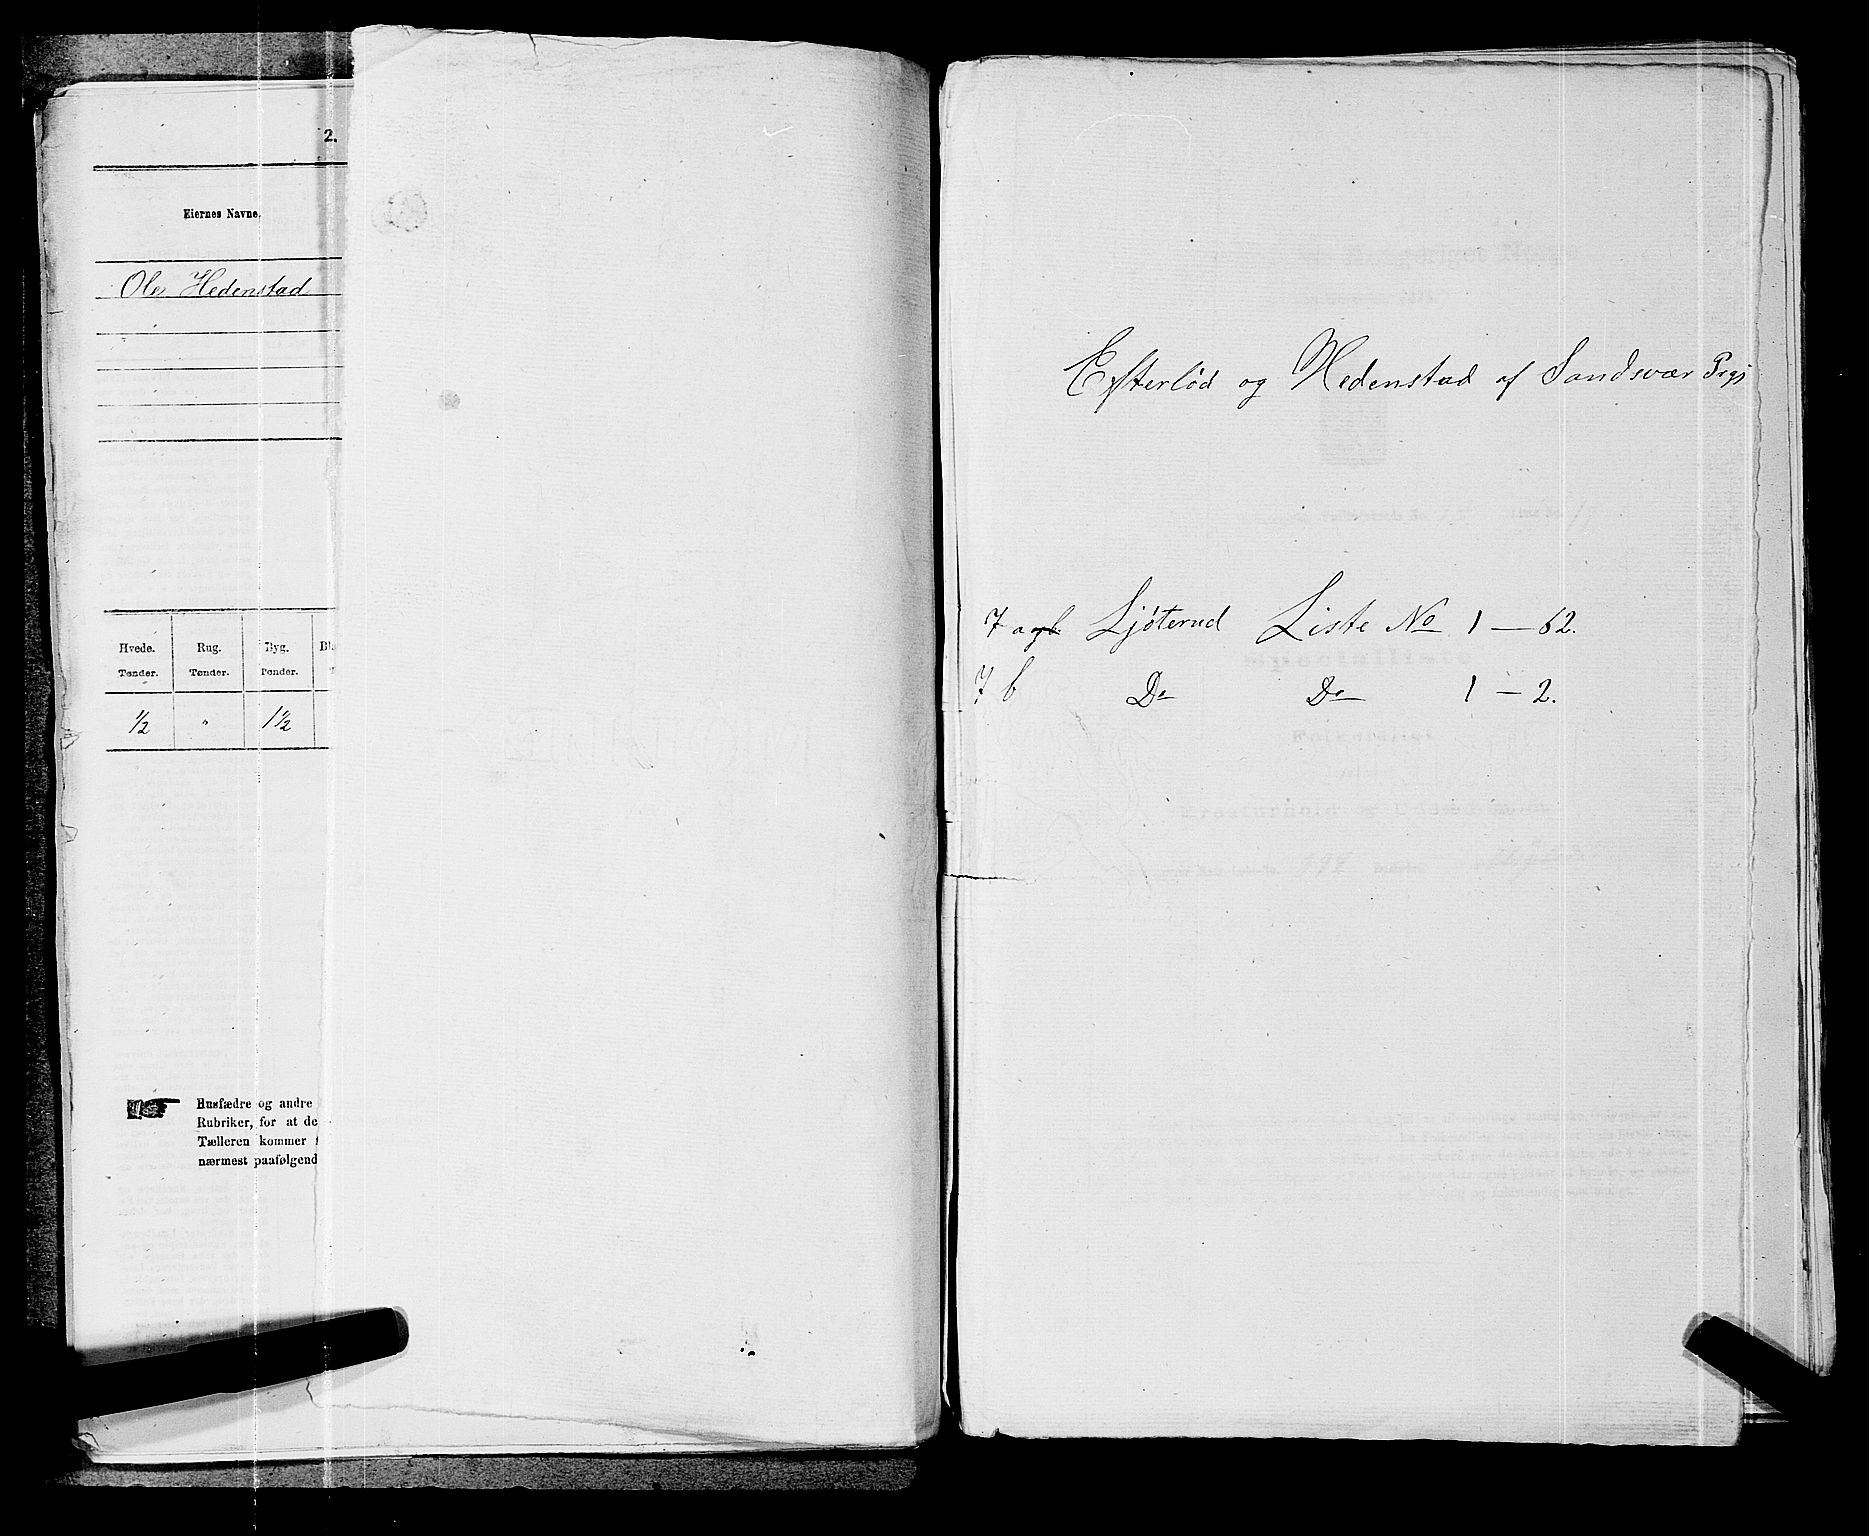 2.
Eiernes Navne.
Ole Hedenstad
Hvede. Rug. Byg.
Tønder. Tønder. Tønder.
½ " 1½
Husfædre og andre
Rubriker, for at de
Tælleren kommer
nærmest paafølgend
Efterlød og Hedenstad af Sandsvær Prgj
7 a Ljøterud Liste No 1 — 62.
7 b Do Do 1 — 2.